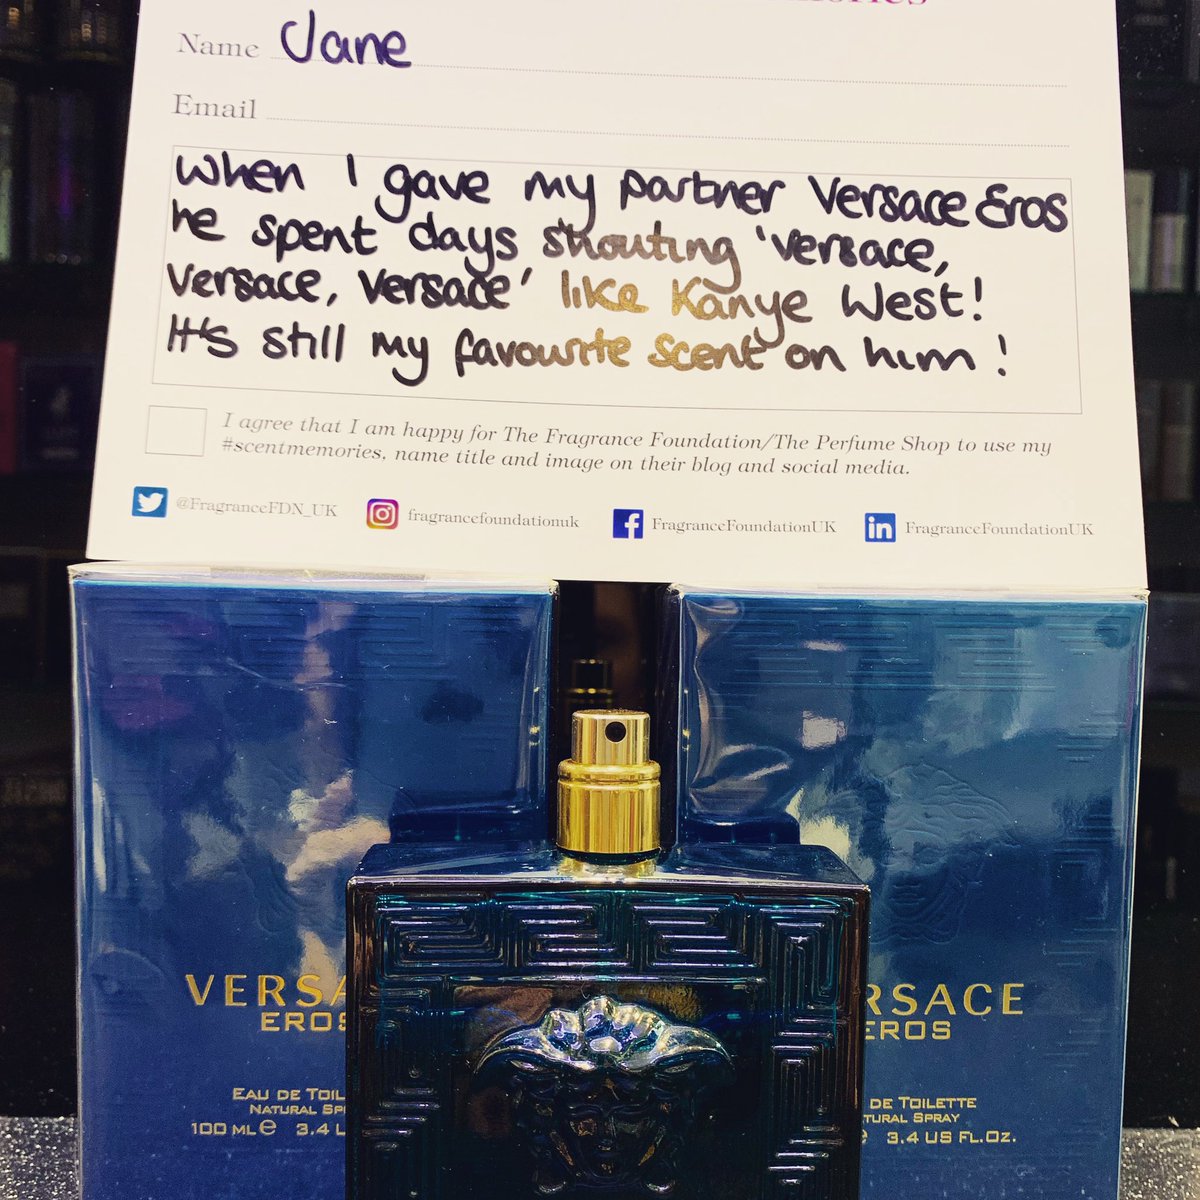 Name Jane
Email
When I gave my partner Versace Eros
he spent days shouting 'Versace,
Versace, Versace' like Kanye West!
It's still my favourite scent on him!
I agree that I am happy for The Fragrance Foundation/The Perfume Shop to use my
#scentmemories, name title and image on their blog and social media.
@FragranceFDN_UK fragrancefoundationuk FragranceFoundationUK FragranceFoundationUK
VERSA RSACE
EROS EROS
EAU DE TOIL DE TOILETTE
NATURAL SP TURAL SPRAY
100 ML e 3.4 e 3.4 US FL.OZ.